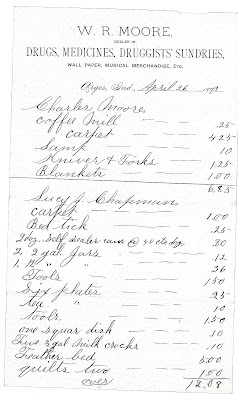 W. R. MOORE,
DEALER IN
DRUGS, MEDICINES, DRUGGISTS' SUNDRIES,
WALL PAPER, MUSICAL MERCHANDISE, ETC.
Ind., April 26 189
Charles Moore
coffee mill 25
carpet 425
Lamp 10
Knives & Forks 125
Blankets 100
6.85
Lucy J. Chapman
carpet 100
Bed tick 25
2 doz. Self Sealer cans @ 40 cts doz 80
2, 2 gal. Jars 12
1, " " 36
Tools 150
Six plates 25
tea " 10
tools 150
one squar dish 10
Five gal milk crocks .10
Feather bed 500
quilts two 100
over 12.08